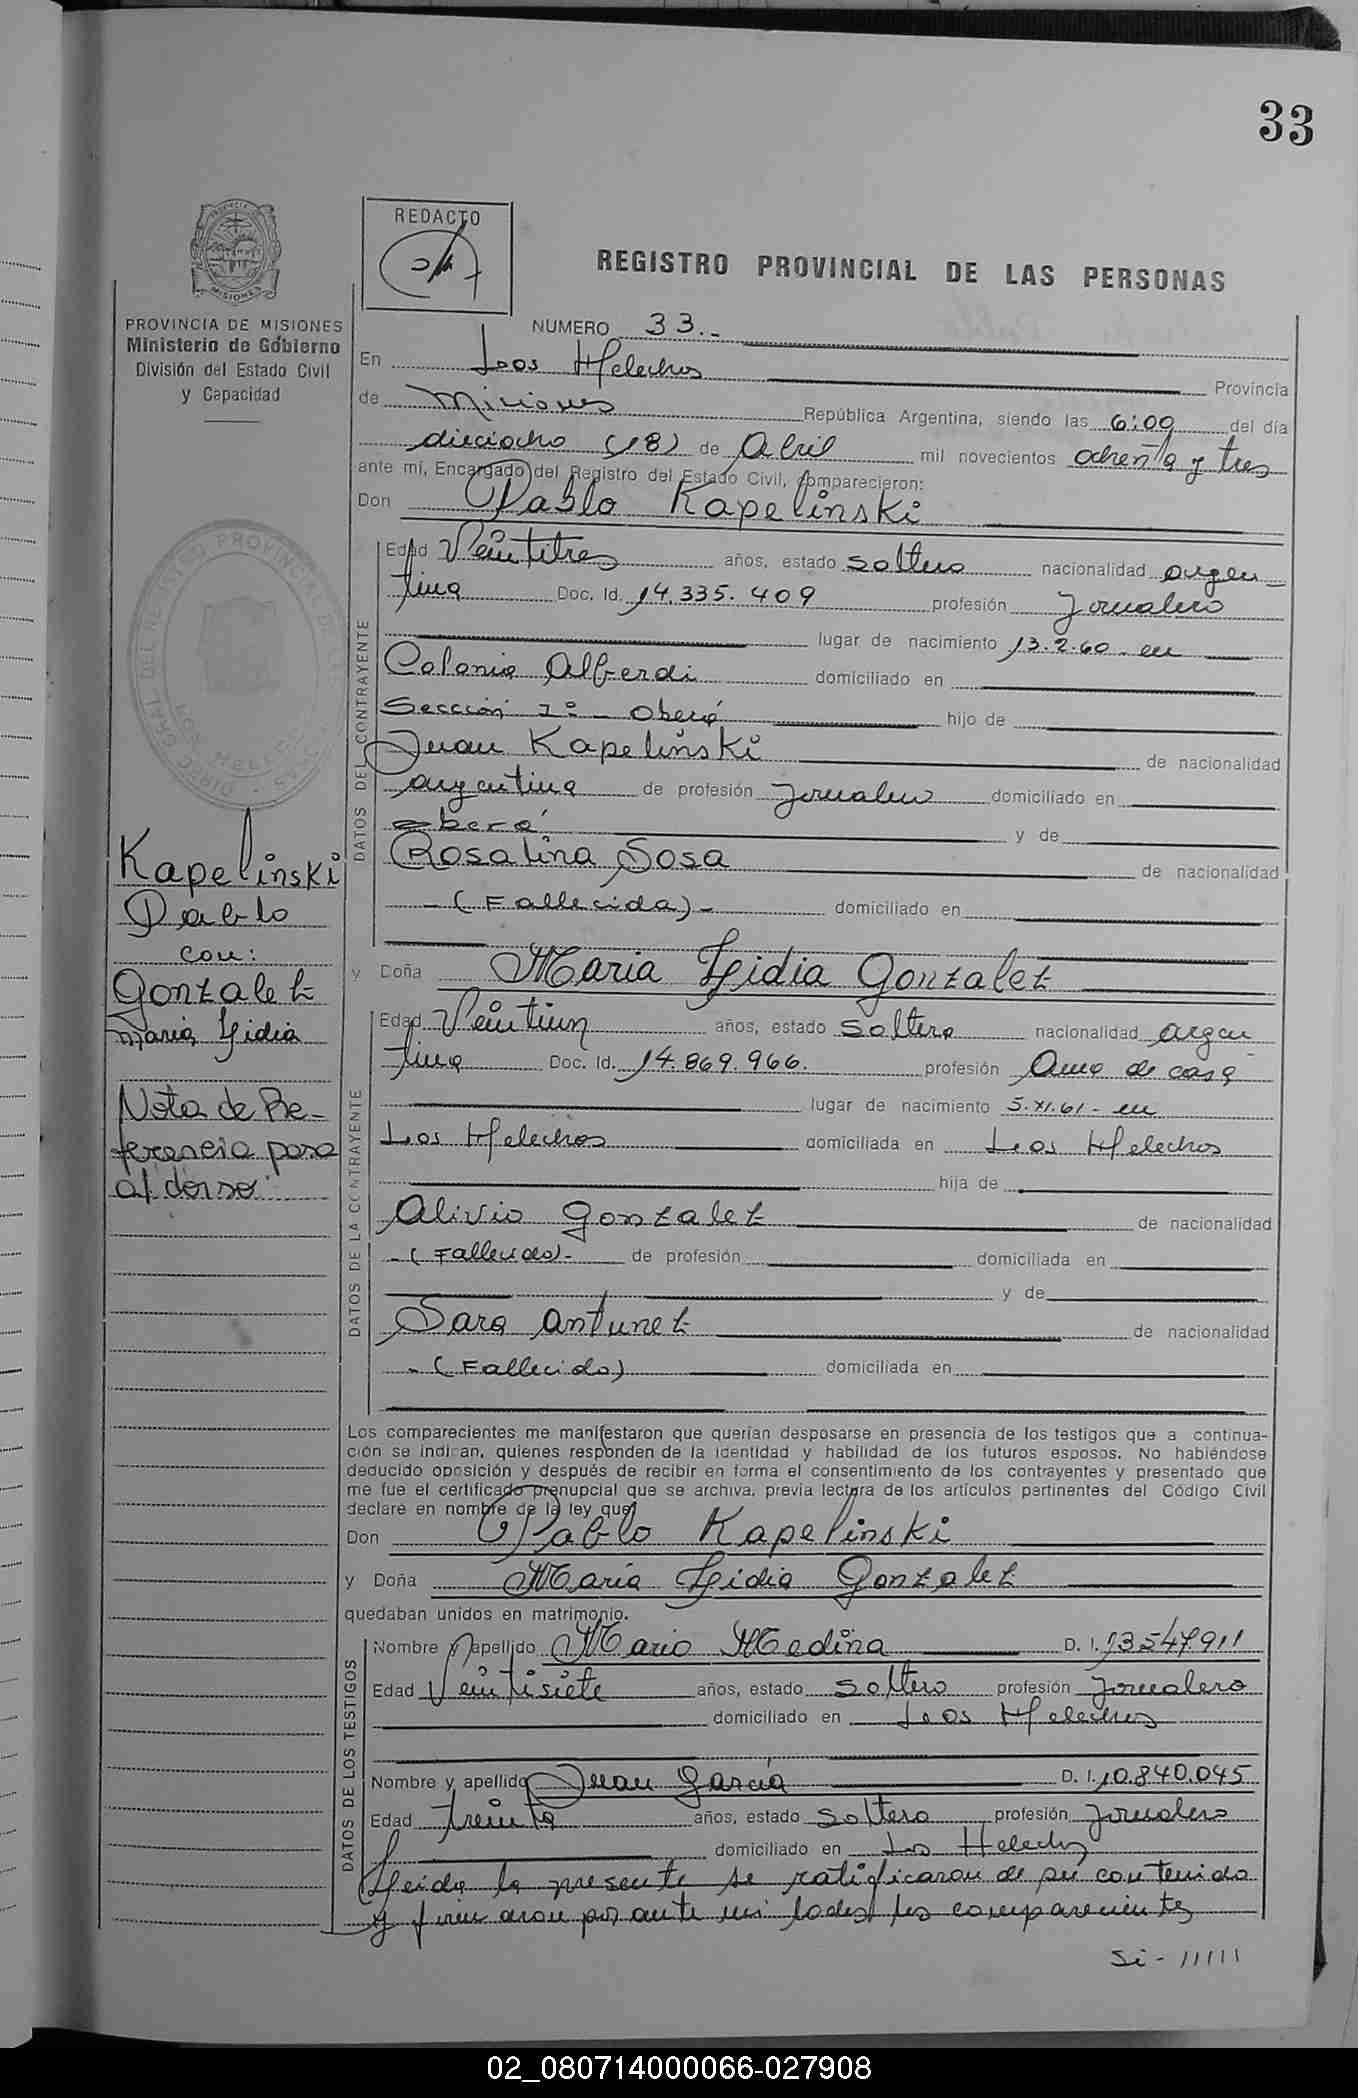 33
REDACTO
REGISTRO PROVINCIAL DE LAS PERSONAS
PROVINCIA DE MISIONES
Ministerio de Gobierno
División del Estado Civil
y Capacidad
NUMERO 33.-
En Los Helechos Provincia
de Misiones República Argentina, siendo las 6:00 del día
dieciocho (18) de Abril mil novecientos ochenta y tres
ante mí, Encargado del Registro del Estado Civil, comparecieron:
Don Pablo Kapelinski
DATOS DEL CONTRAYENTE
Edad Veintitres años, estado soltero nacionalidad argen-
tina Doc. Id. 14.335.409 profesión Jornalero
lugar de nacimiento 13.2.60 - en
Colonia Alberdi domiciliado en
Sección 1º - Oberá hijo de
Juan Kapelinski de nacionalidad
argentina de profesión Jornalero domiciliado en
Oberá y de
Rosalina Sosa de nacionalidad
-(Fallecida)- domiciliado en
Kapelinski
Pablo
con:
Gonzalez
Maria Lidia
Nota de Re-
ferencia pasa
al dorso
y Doña Maria Lidia Gonzalez
DATOS DE LA CONTRAYENTE
Edad Veintiun años, estado soltera nacionalidad argen
tina Doc. Id. 14.869.966. profesión Ama de casa
lugar de nacimiento 5.XI.61 - en
Los Helechos domiciliada en Los Helechos
hija de
Alivio Gonzalez de nacionalidad
-(Fallecido)- de profesión domiciliada en
y de
Sara Antunez de nacionalidad
-(Fallecida) domiciliada en
Los comparecientes me manifestaron que querían desposarse en presencia de los testigos que a continua-
ción se indican, quienes responden de la identidad y habilidad de los futuros esposos. No habiéndose
deducido oposición y después de recibir en forma el consentimiento de los contrayentes y presentado que
me fue el certificado prenupcial que se archiva, previa lectura de los artículos pertinentes del Código Civil
declaré en nombre de la ley que
Don Pablo Kapelinski
y Doña Maria Lidia Gonzalez
quedaban unidos en matrimonio.
DATOS DE LOS TESTIGOS
Nombre y apellido Mario Medina D. I. 13547911
Edad Veintisiete años, estado soltero profesión Jornalero
domiciliado en Los Helechos
Nombre y apellido Juan García D. I. 10.840.045
Edad treinta años, estado soltero profesión Jornalero
domiciliado en Los Helechos
Leida la presente se ratificaron de su contenido
y firmaron por ante mi todos los comparecientes
Si - 11111
02_080714000066-027908